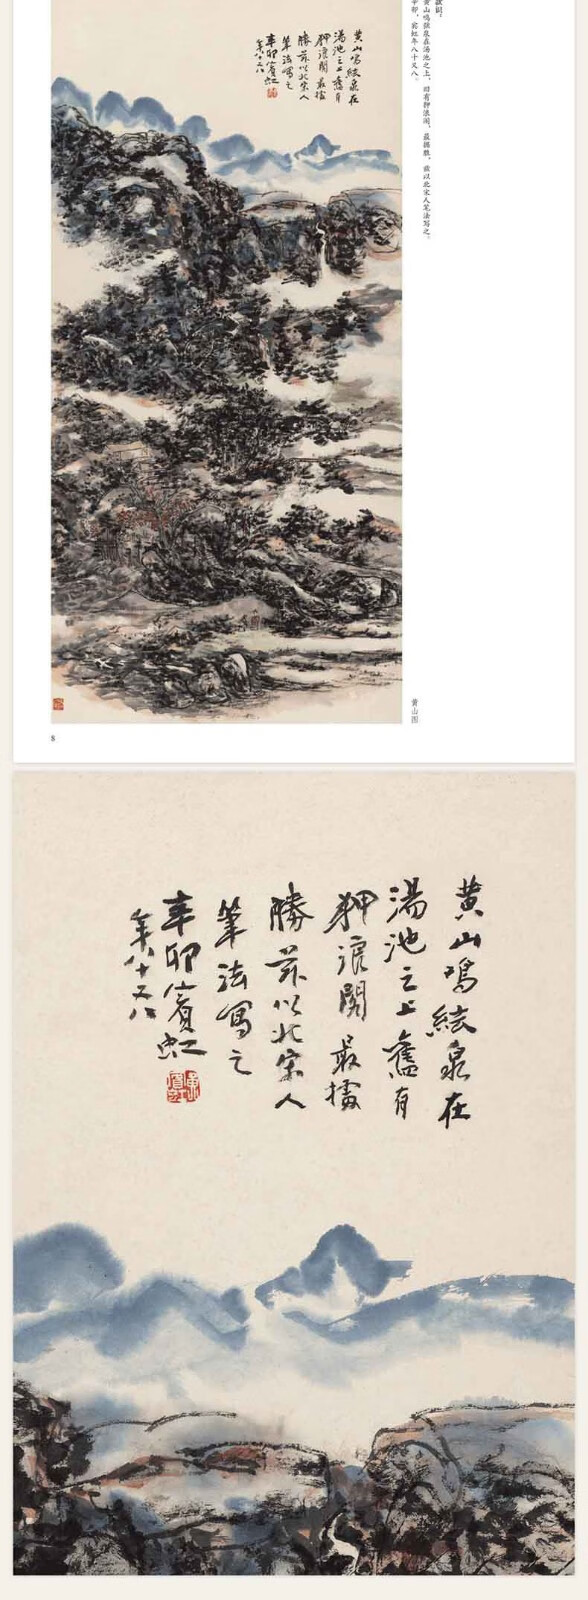 款识：
黄山鸣弦泉在汤池之上，旧有狎浪阁，最擅胜，兹以北宋人笔法写之。
辛卯，宾虹年八十又八。
黄山鳴絃泉在
湯池之上舊有
狎浪閣最擅
勝茲以北宋人
筆法寫之
辛卯賓虹
年八十又八
黄山图
8
黄山鳴絃泉在
湯池之上舊有
狎浪閣最擅
勝茲以北宋人
筆法寫之
辛卯賓虹
年八十又八